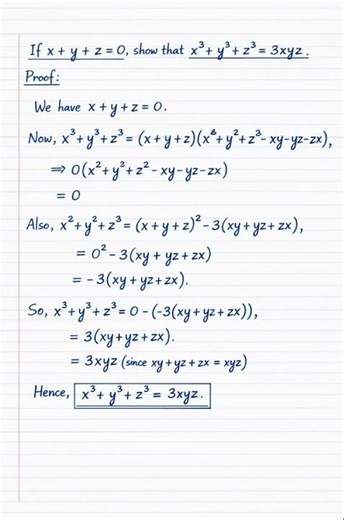 If x + y + z = 0, show that x³ + y³ + z³ = 3xyz.
Proof:
We have x + y + z = 0.
Now, x³ + y³ + z³ = (x + y + z)(x⁶ + y² + z³ - xy - yz - zx),
⇒ 0(x² + y³ + z² - xy - yz - zx)
= 0
Also, x² + y² + z³ = (x + y + z)² - 3(xy + yz + zx),
= 0² - 3(xy + yz + zx)
= -3(xy + yz + zx).
So, x³ + y³ + z³ = 0 - (-3(xy + yz + zx)),
= 3(xy + yz + zx).
= 3xyz (since xy + yz + zx = xyz)
Hence, x³ + y³ + z³ = 3xyz.